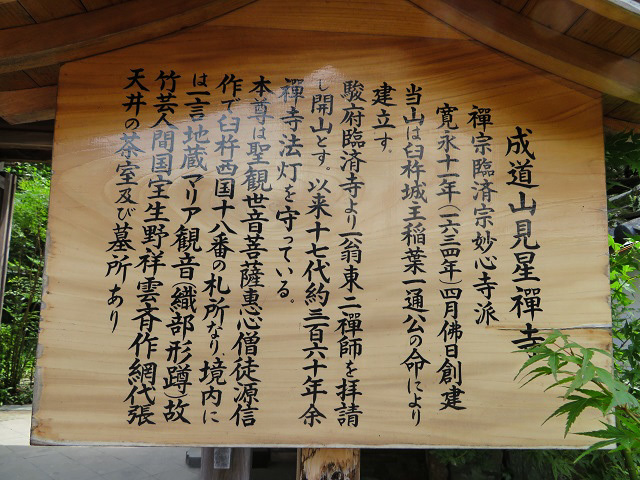 成道山見星禅寺
禅宗臨済宗妙心寺派
寛永十一年(一六三四年)四月佛日創建
当山は臼杵城主稲葉一通公の命により
建立す
駿府臨済寺より一翁東二禅師を拝請
し開山とす。以来十七代約三百六十年余
禅寺法灯を守っている。
本尊は聖観世音菩薩恵心僧徒源信
作で臼杵西国十八番の札所なり境内に
は一言地蔵マリア観音(織部形蹲)故
竹芸人間国宝生野祥雲斉作網代張
天井の茶室及び墓所あり